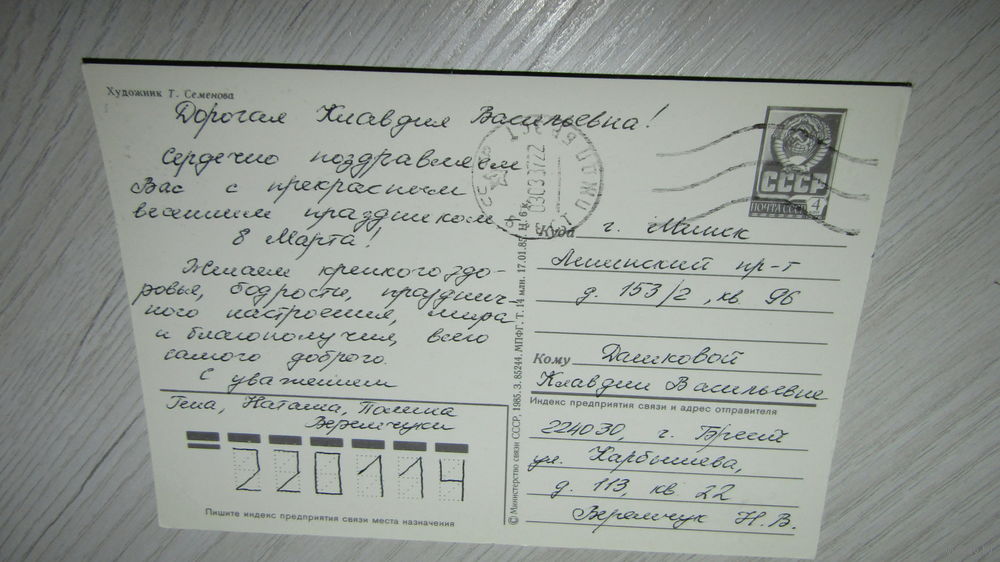 Художник Т. Семенова
Дорогая Клавдия Васильевна!
Сердечно поздравляем
Вас с прекрасным
весенним праздником
8 Марта!
Желаем крепкого здо-
ровья, бодрости, празднич-
ного настроения, мира
и благополучия, всего
самого доброго.
С уважением
Гена, Наташа, Полина
Веремчуки
220114
Пишите индекс предприятия связи места назначения
© Министерство связи СССР, 1985. З. 85244. МПФГ. Т. 14 млн. 17.01.85. Ц. 6 к.
СССР
ПОЧТА СССР 4
Куда г. Минск
Ленинский пр-т
д. 153/2, кв 96
Кому Дашковой
Клавдии Васильевне
Индекс предприятия связи и адрес отправителя
224030, г. Брест
ул. Карбышева,
д. 113, кв 22
Веремчук Н. В.